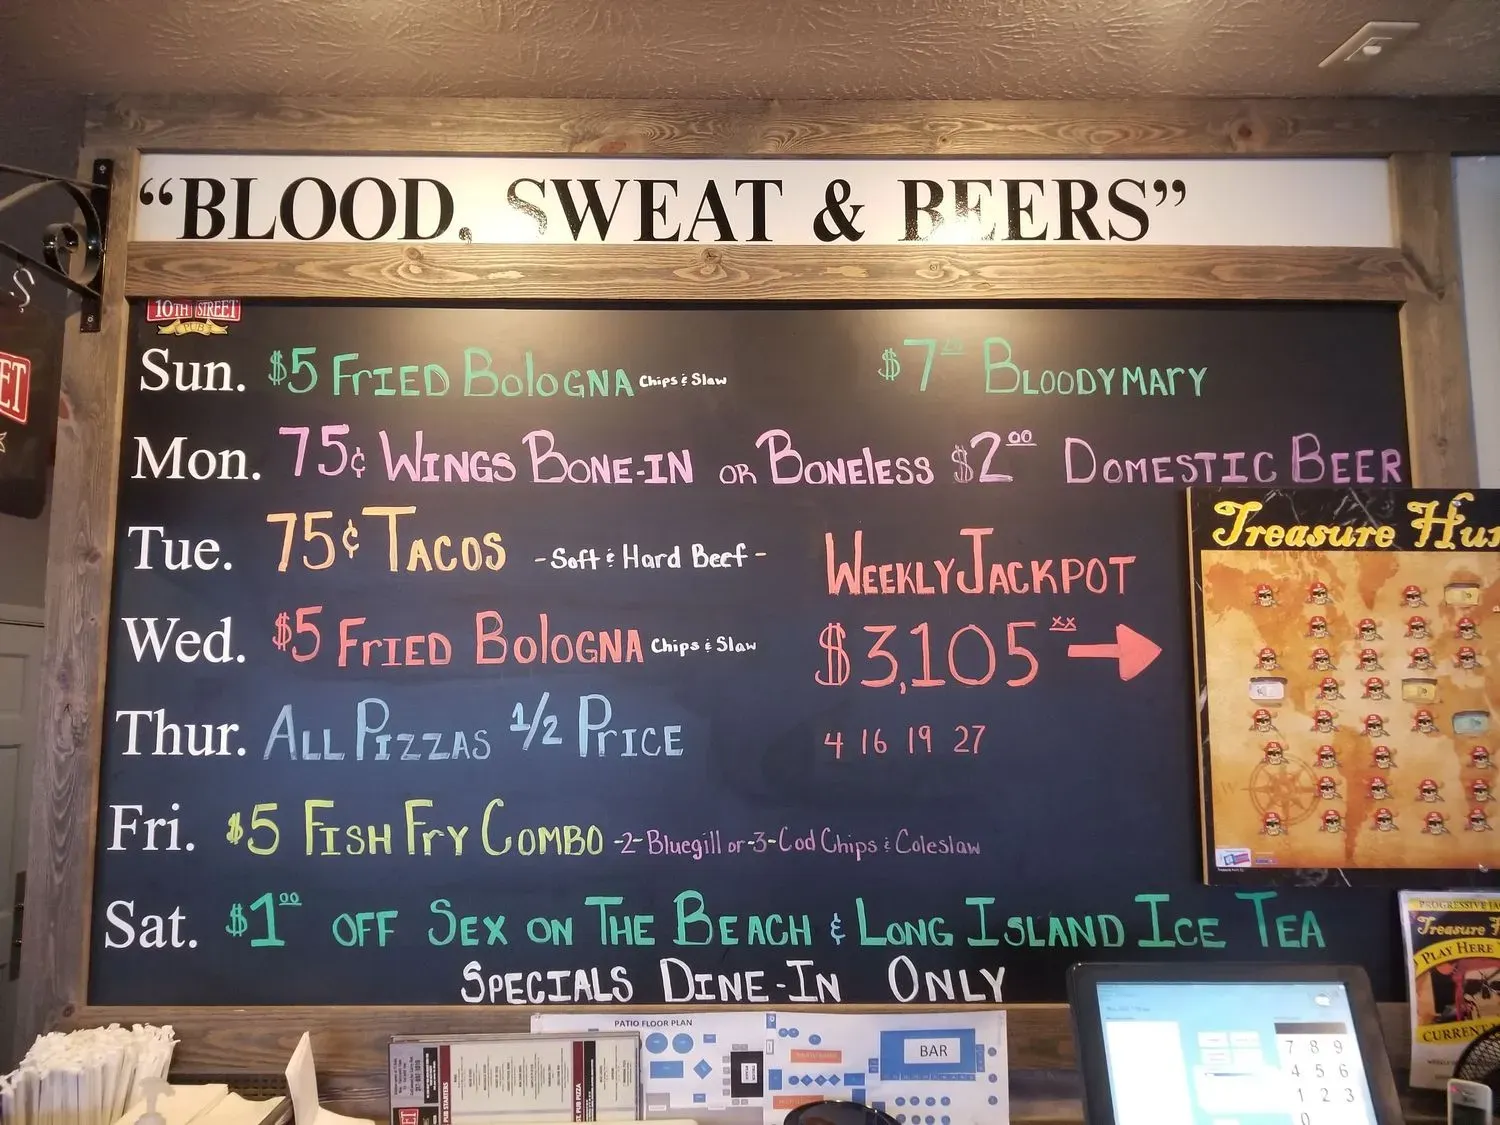 “BLOOD, SWEAT & BEERS”
10TH STREET
PUB
Sun. $5 FRIED BOLOGNA Chips & Slaw $7 BLOODYMARY
Mon. 75¢ WINGS BONE-IN OR BONELESS $2.00 DOMESTIC BEER
Tue. 75¢ TACOS -Soft & Hard Beef-
WEEKLY JACKPOT
Wed. $5 FRIED BOLOGNA Chips & Slaw
$3,105 xx
Thur. ALL PIZZAS 1/2 PRICE
4 16 19 27
Fri. $5 FISH FRY COMBO -2-Bluegill or -3-Cod Chips & Coleslaw
Sat. $1.00 OFF SEX ON THE BEACH & LONG ISLAND ICE TEA
SPECIALS DINE-IN ONLY
Treasure Hun
ET
PATIO FLOOR PLAN
BAR
PUB STARTERS
PUB PIZZA
PROGRESSIVE JA
Treasure H
PLAY HERE
CURRENT
7 8 9
4 5 6
1 2 3
0